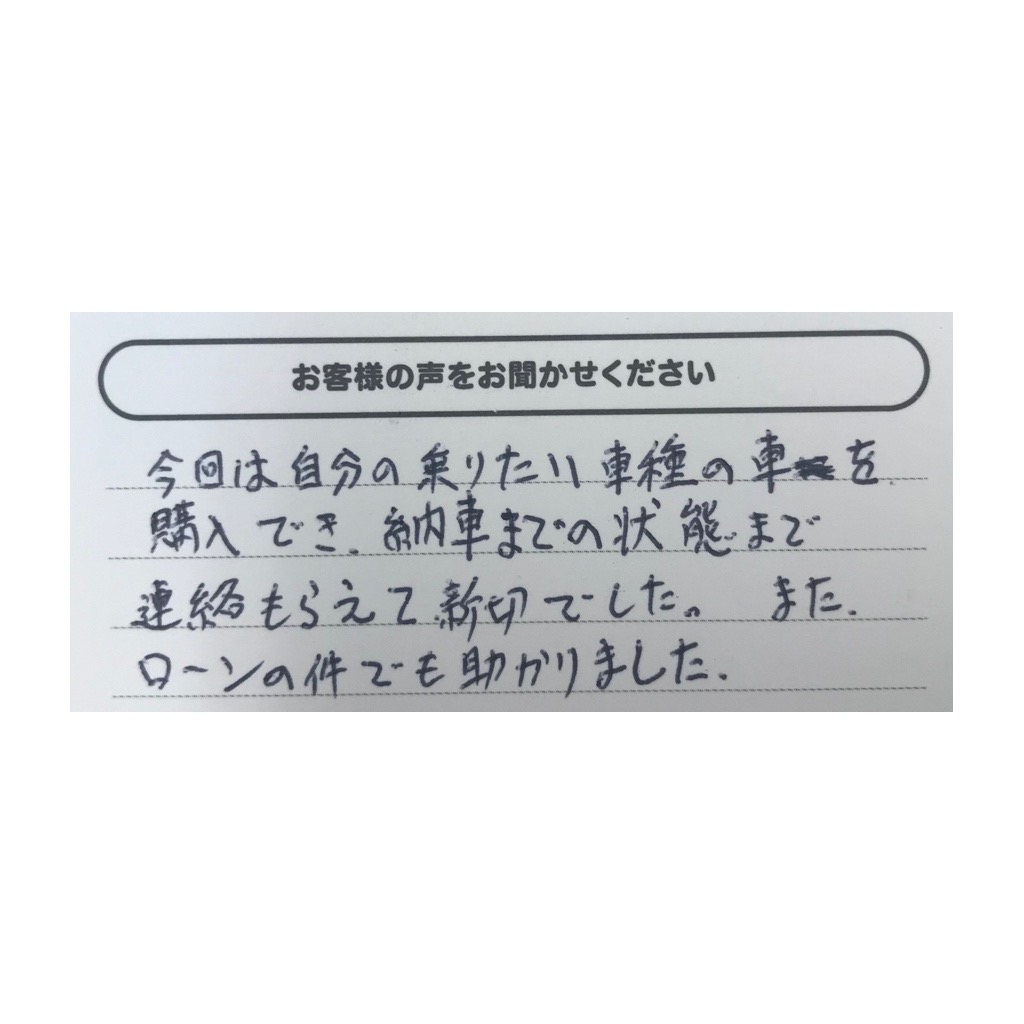 お客様の声をお聞かせください
今回は自分の乗りたい車種の車を
購入でき、納車までの状態まで
連絡もらえて新切でした。また、
ローンの件でも助かりました。